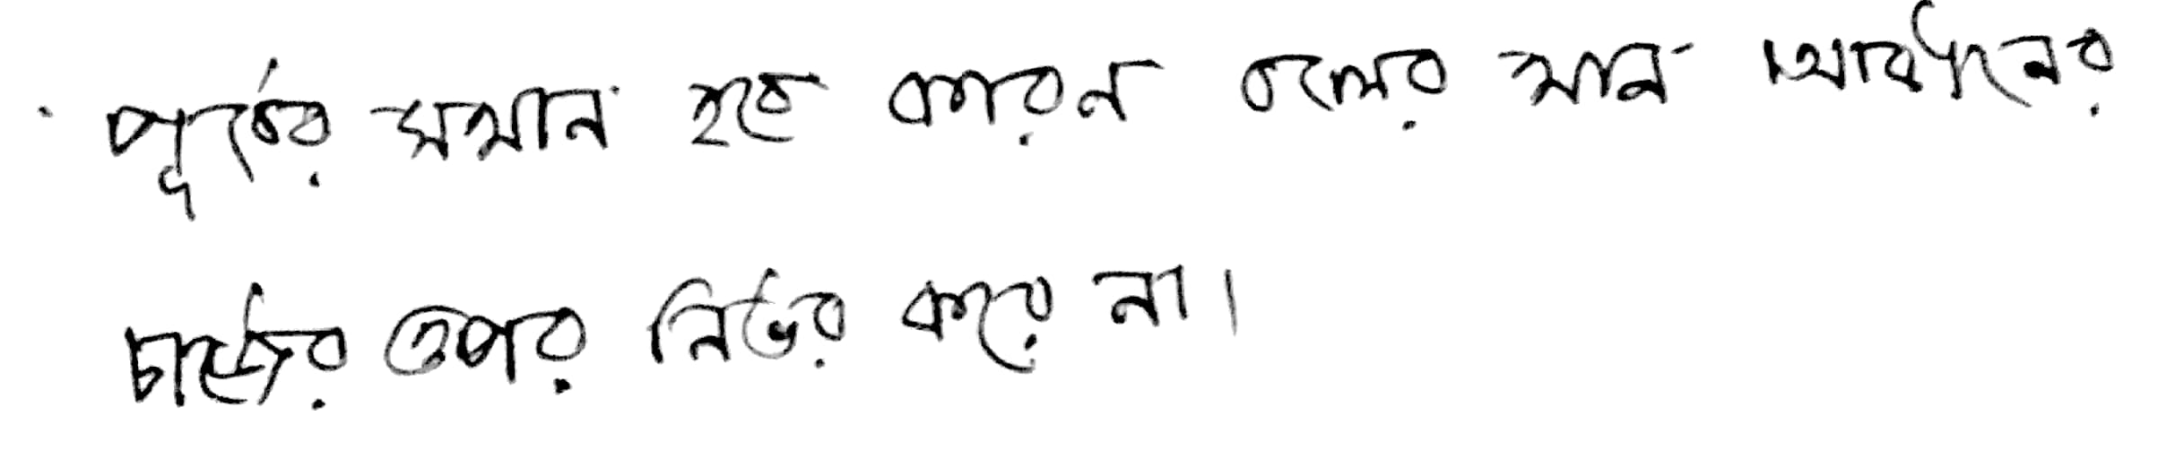 পূর্বের সমান হবে কারন বলের মান আবর্ধনের
চার্জের ওপর নির্ভর করে না।